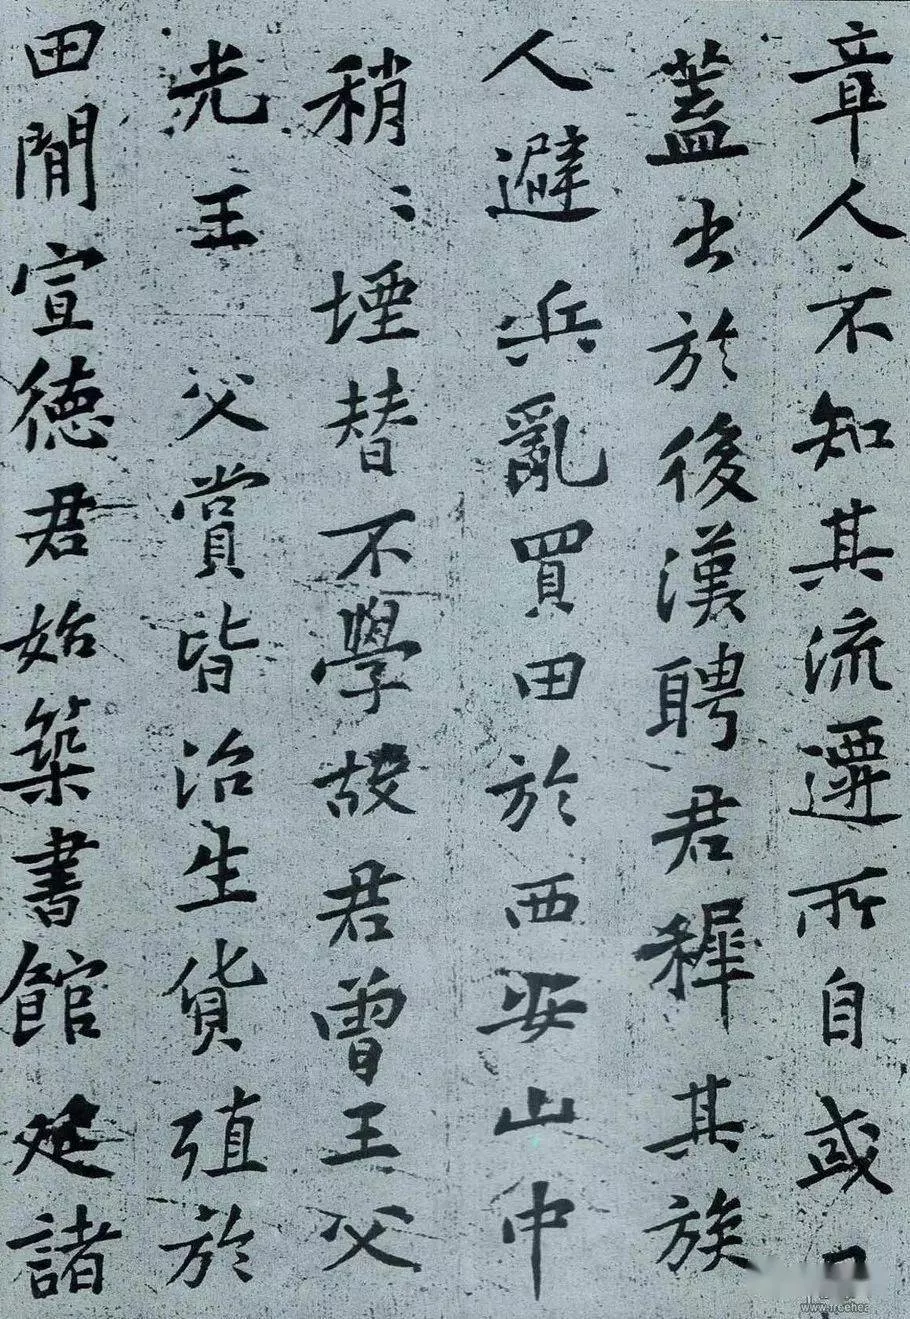 章人不知其流遷所自或曰
蓋出於後漢聘君穉其族
人避兵亂買田於西安山中
稍〻堙替不學故君曾王父
光王父賞皆治生貨殖於
田閒宣德君始築書館延諸
www.freehea